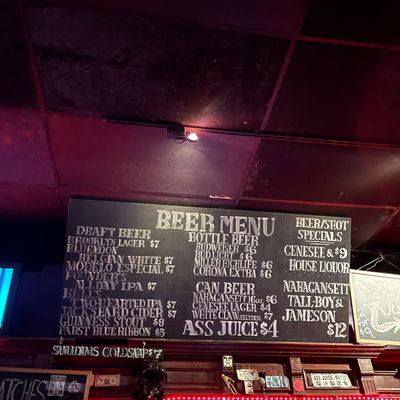 BEER MENU
DRAFT BEER
BROOKLYN LAGER $7
BLUEMOON
BELGIAN WHITE $7
MODELO ESPECIAL $7
FOUNDER'S
ALL DAY IPA $7
BELL'S
TWO HEARTED IPA $7
JACK'S HARD CIDER $7
GUINNESS STOUT $8
PABST BLUE RIBBON $5
SAM ADAMS COLDSNAP $7
BOTTLE BEER
BUDWEISER $6
BUD LIGHT $6
MILLER HIGHLIFE $6
CORONA EXTRA $6
CAN BEER
NARAGANSETT 16oz $6
WHITE CLAW SELTZER $7
ASS JUICE $4
BEER/SHOT
SPECIALS
GENESEE & $9
HOUSE LIQUOR
NARAGANSETT
TALL-BOY &
JAMESON $12